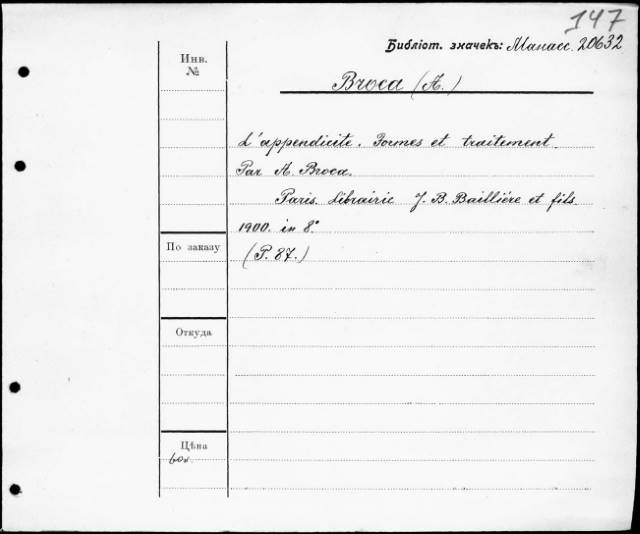 147
Библіот. значекъ: Манасс. 20632
Инв.
№
Broca (A.)
L'appendicite. Formes et traitement.
Par A. Broca.
Paris. Librairie J. B. Baillière et fils.
1900. in 8°
По заказу
(P. 87.)
Откуда
Цѣна
60к.